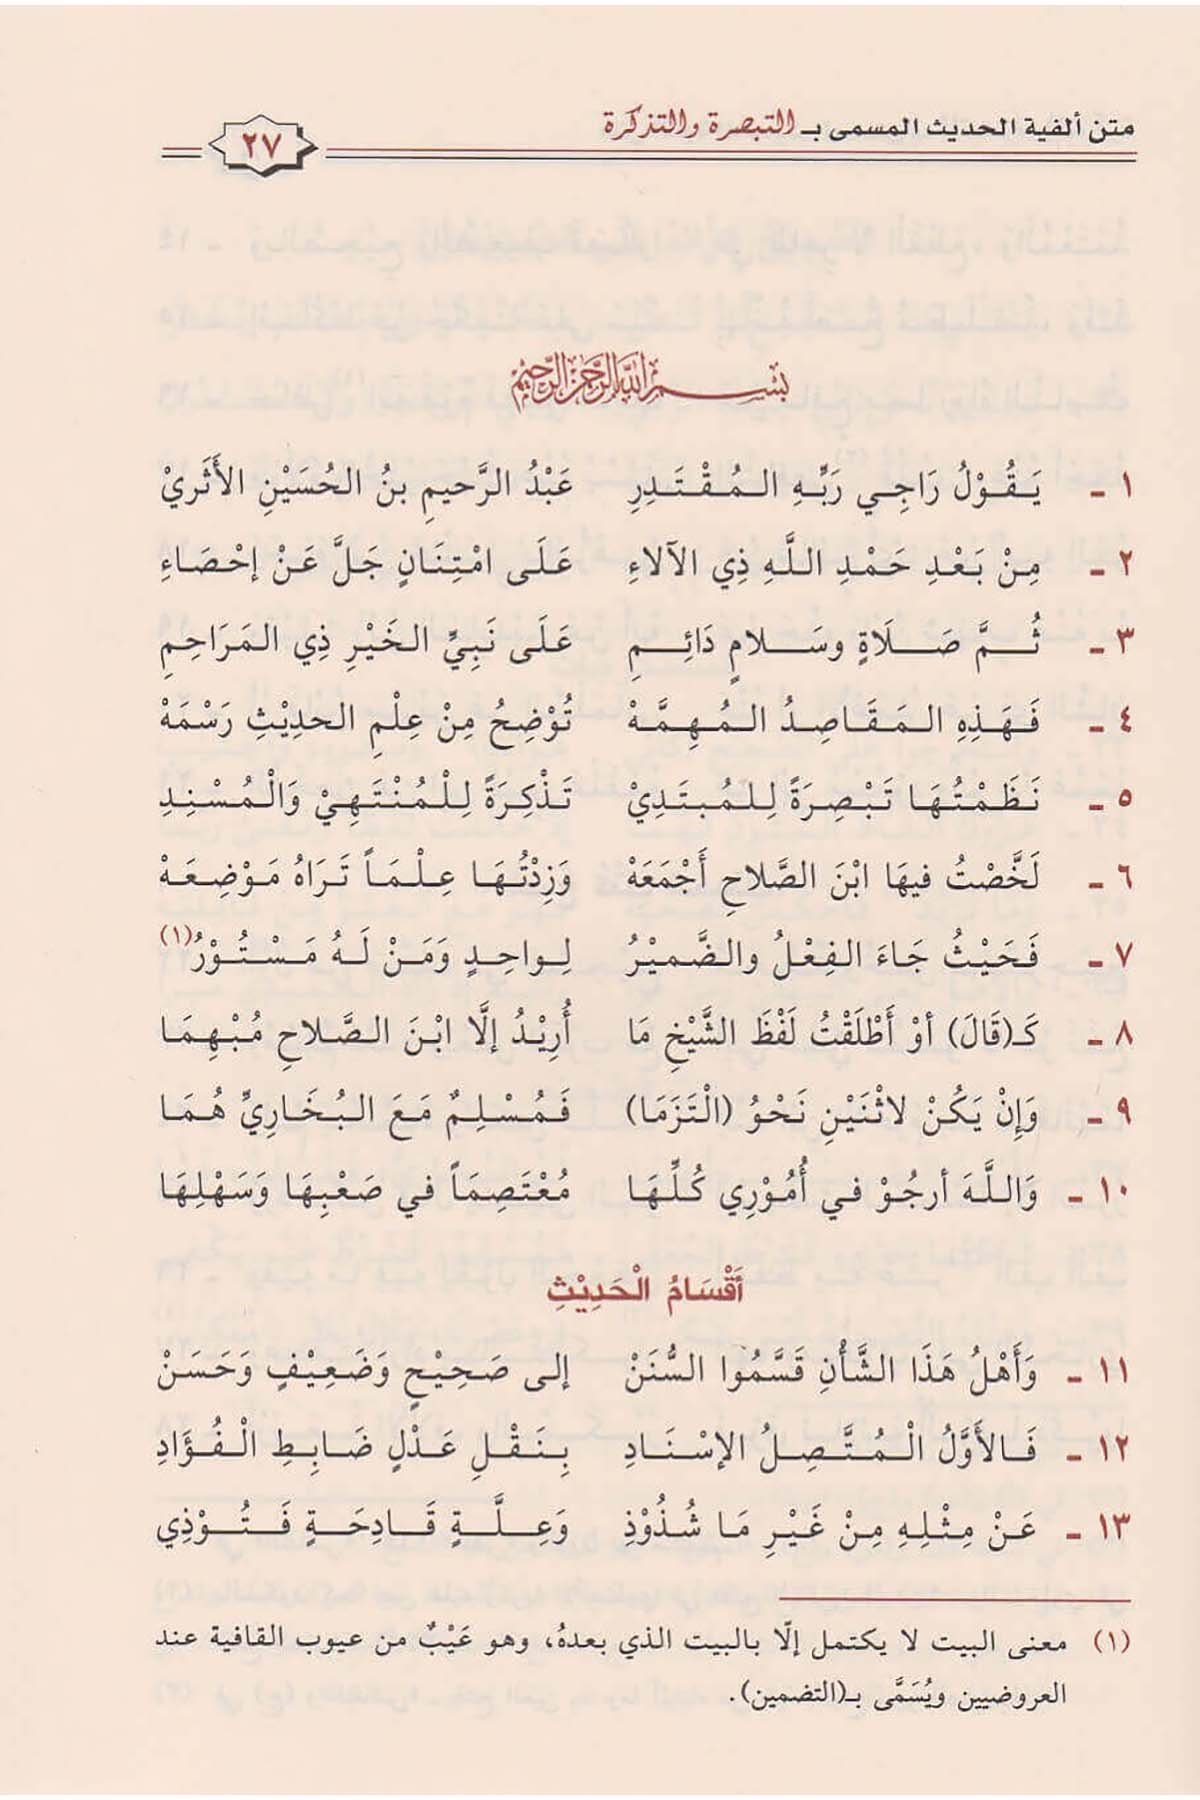 متن ألفية الحديث المسمى بـ التبصرة والتذكرة
٢٧
بسم الله الرحمن الرحيم
١ - يَقُوْلُ رَاجِي رَبِّهِ المُقْتَدِرِ عَبْدُ الرَّحيمِ بنُ الحُسَيْنِ الأَثَرِيْ
٢ - مِنْ بَعْدِ حَمْدِ اللَّهِ ذِي الآلاءِ عَلَى امْتِنَانٍ جَلَّ عَنْ إحْصَاءِ
٣ - ثُمَّ صَلَاةٍ وسَلامٍ دَائِمِ عَلَى نَبِيِّ الخَيْرِ ذِي المَرَاحِمِ
٤ - فَهَذِهِ المَقَاصِدُ المُهِمَّهْ تُوْضِحُ مِنْ عِلْمِ الحدِيْثِ رَسْمَهْ
٥ - نَظَمْتُهَا تَبْصِرَةً لِلمُبتَدِيْ تَذْكِرَةً لِلْمُنْتَهِيْ وَالْمُسْنِدِ
٦ - لَخَّصْتُ فيهَا ابْنَ الصَّلاحِ أَجْمَعَهْ وَزِدْتُهَا عِلْمَاً تَرَاهُ مَوْضِعَهْ
٧ - فَحَيْثُ جَاءَ الفِعْلُ والضَّميْرُ لِواحِدٍ وَمَنْ لَهُ مَسْتُوْرُ(١)
٨ - كَـ(قَالَ) أوْ أَطْلَقْتُ لَفْظَ الشَّيْخِ مَا أُرِيْدُ إلَّا ابْنَ الصَّلاحِ مُبْهِمَا
٩ - وَإِنْ يَكُنْ لاثْنَيْنِ نَحْوُ (الْتَزَمَا) فَمُسْلِمٌ مَعَ البُخَارِيِّ هُمَا
١٠ - وَاللَّهَ أرجُوْ في أُمُوْرِي كُلِّهَا مُعْتَصِمَاً في صَعْبِهَا وَسَهْلِهَا
أَقْسَامُ الْحَدِيْثِ
١١ - وَأَهْلُ هَذَا الشَّأْنِ قَسَّمُوا السُّنَنْ إلى صَحِيْحٍ وَضَعِيْفٍ وَحَسَنْ
١٢ - فَالأَوَّلُ الْمُتَّصِلُ الإسْنَادِ بِنَقْلِ عَدْلٍ ضَابِطِ الْفُؤَادِ
١٣ - عَنْ مِثْلِهِ مِنْ غَيْرِ مَا شُذُوْذِ وَعِلَّةٍ قَادِحَةٍ فَتُوْذِي
(١) معنى البيت لا يكتمل إلّا بالبيت الذي بعدهُ، وهو عَيْبٌ من عيوب القافية عند
العروضيين ويُسَمَّى بـ(التضمين).